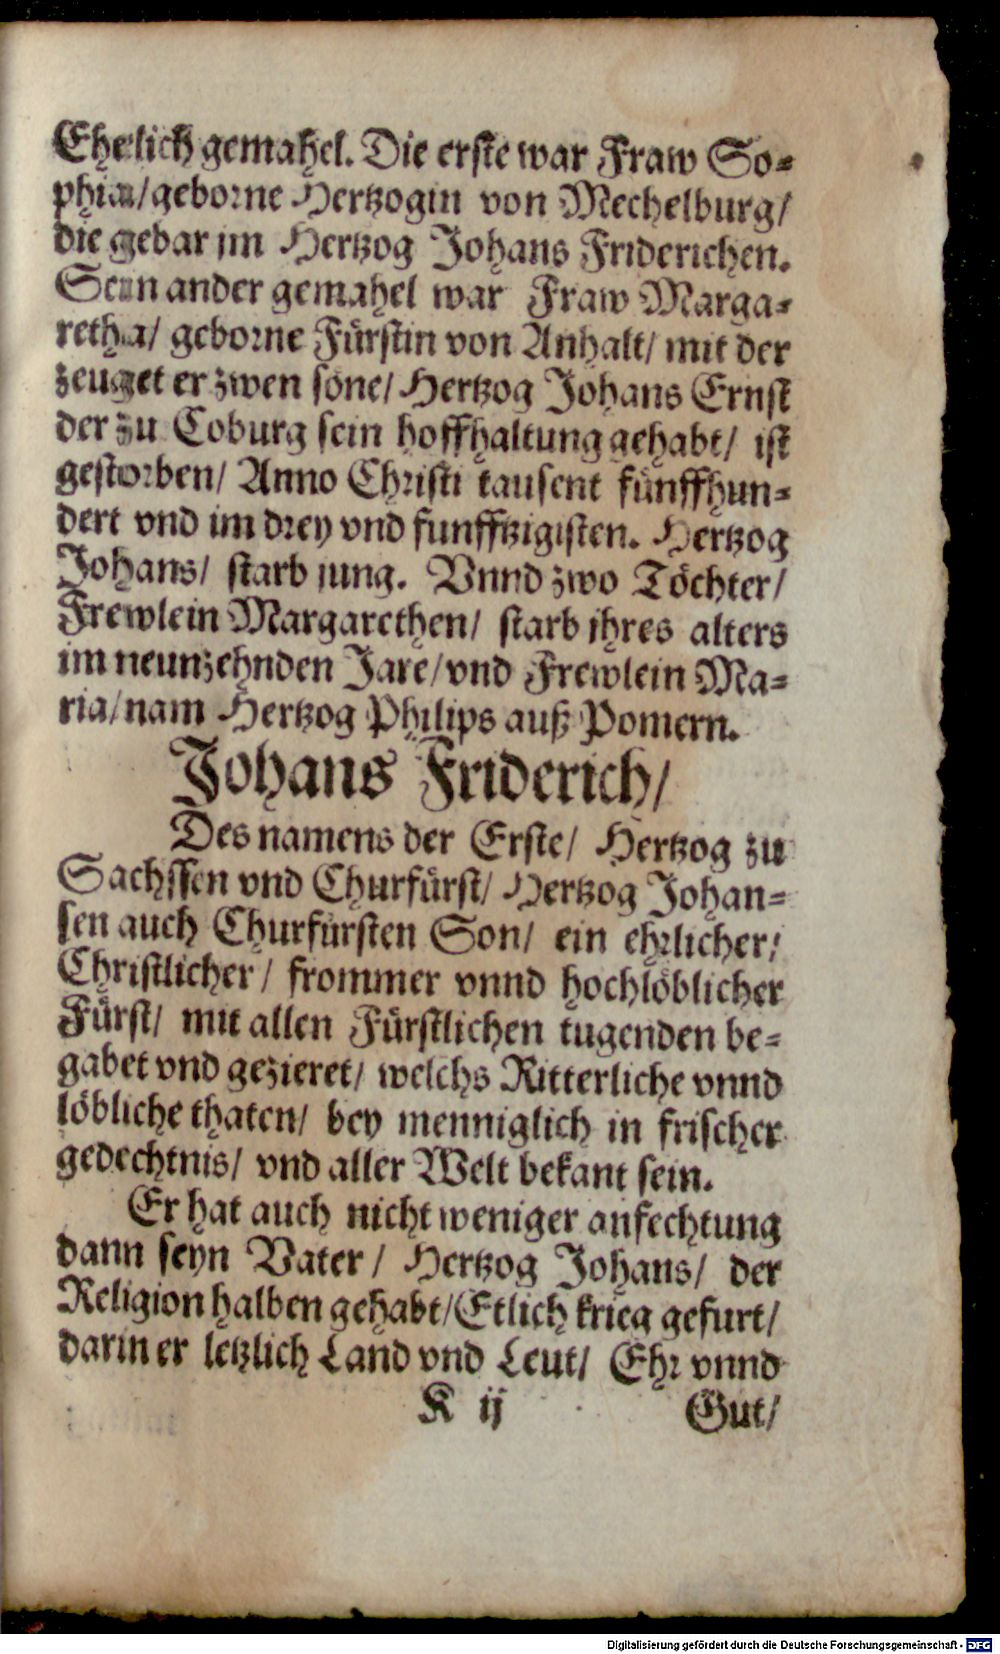 Ehelich gemahel. Die erste war Fraw So⸗
phia/ geborne Hertzogin von Mechelburg/
die gebar jm Hertzog Johans Friderichen.
Sein ander gemahel war Fraw Marga⸗
retha/ geborne Fürstin von Anhalt/ mit der
zeuget er zwen söne/ Hertzog Johans Ernst
der zu Coburg sein hoffhaltung gehabt/ ist
gestorben/ Anno Christi tausent fünffhun⸗
dert vnd im drey vnd funfftzigisten. Hertzog
Johans/ starb jung. Vnnd zwo Töchter/
Frewlein Margarethen/ starb jhres alters
im neunzehnden Jare/ vnd Frewlein Ma⸗
ria/ nam Hertzog Philips auß Pomern.
Johans Friderich/
Des namens der Erste/ Hertzog zu
Sachssen vnd Churfürst/ Hertzog Johan⸗
sen auch Churfürsten Son/ ein ehrlicher/
Christlicher/ frommer vnnd hochlöblicher
Fürst/ mit allen Fürstlichen tugenden be⸗
gabet vnd gezieret/ welchs Ritterliche vnnd
löbliche thaten/ bey menniglich in frischer
gedechtnis/ vnd aller Welt bekant sein.
Er hat auch nicht weniger anfechtung
dann seyn Vater/ Hertzog Johans/ der
Religion halben gehabt/ Etlich krieg gefurt/
darin er letzlich Land vnd Leut/ Ehr vnnd
K ij Gut/
Digitalisierung gefördert durch die Deutsche Forschungsgemeinschaft - DFG